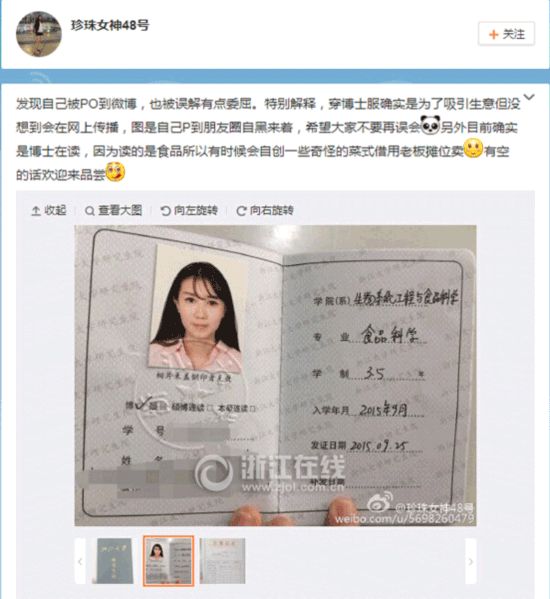 珍珠女神48号
+ 关注
发现自己被PO到微博，也被误解有点委屈。特别解释，穿博士服确实是为了吸引生意但没
想到会在网上传播，图是自己P到朋友圈自黑来着，希望大家不要再误会 另外目前确实
是博士在读，因为读的是食品所以有时候会自创一些奇怪的菜式借用老板摊位卖 有空
的话欢迎来品尝
收起 查看大图 向左旋转 向右旋转
相片未盖钢印者无效
博 硕 硕博连读 本硕连读
学 号
姓 名
学 院(系) 生物系统工程与食品科学
专 业 食品科学
学 制 3.5 年
入学年月 2015年9月
发证日期 2015.09.25
补发日期
浙江在线
www.zjol.com.cn
@珍珠女神48号
weibo.com/u/5698260479